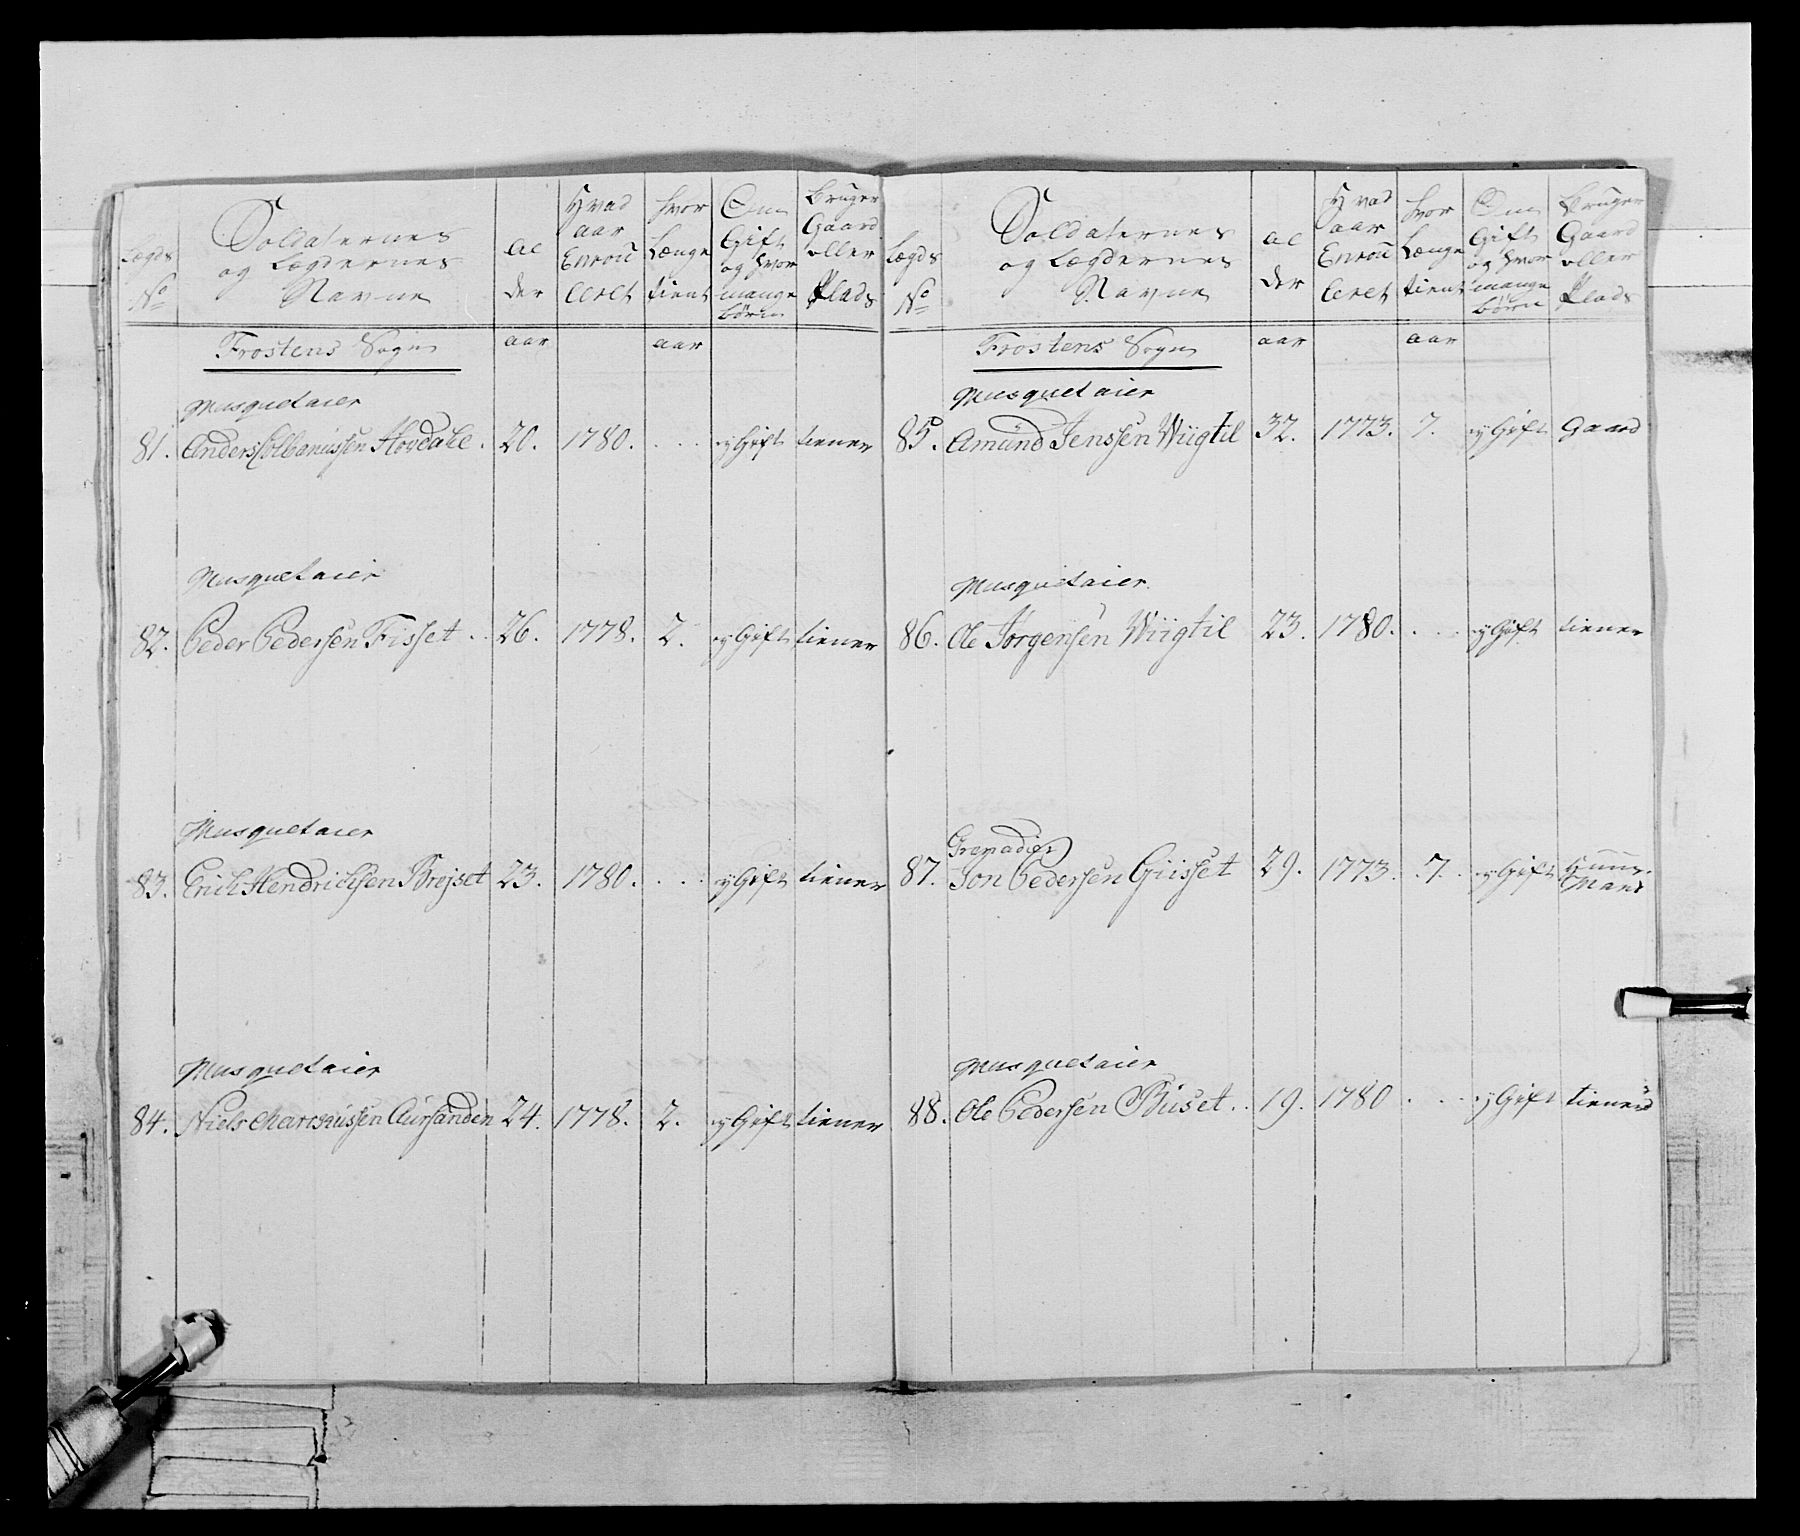 Lægds No
Soldaternes og Lægdernes Navne
Alder
Hvad aar Enroulleret
Hvor Længe tient
Om Gift og hvor mange børn
Bruger Gaard eller Plads
Frostens Sogn aar aar
Musquetaier
81. Anders Colbanussen Hovdahl. 20. 1780. . . . ey Gift tiener
Musquetaier
82. Peder Pedersen Fisset. . 26. 1778. 2. ey Gift tiener
Musquetaier
83. Erich Hendrichsen Brejset 23. 1780. . . . ey Gift tiener
Musquetaier
84. Niels 24. 1778. 2. ey Gift tiener
Lægds No
Soldaternes og Lægdernes Navne
Alder
Hvad aar Enroulleret
Hvor Længe tient
Om Gift og hvor mange børn
Bruger Gaard eller Plads
Frostens Sogn aar aar
Musquetaier
85. Amund Jenssen Wiigtil 32. 1773. 7. ey Gift Gaard
Musquetaier
86. Ole Jørgensen Wiigtil 23. 1780. . . . ey Gift tiener
Grenadier
87. Jon Pedersen Giisset 29. 1773. 7. ey Gift Huus Mand
Musquetaier
88. Ole Pedersen Buset. . 19. 1780 . . . ey Gift tiener